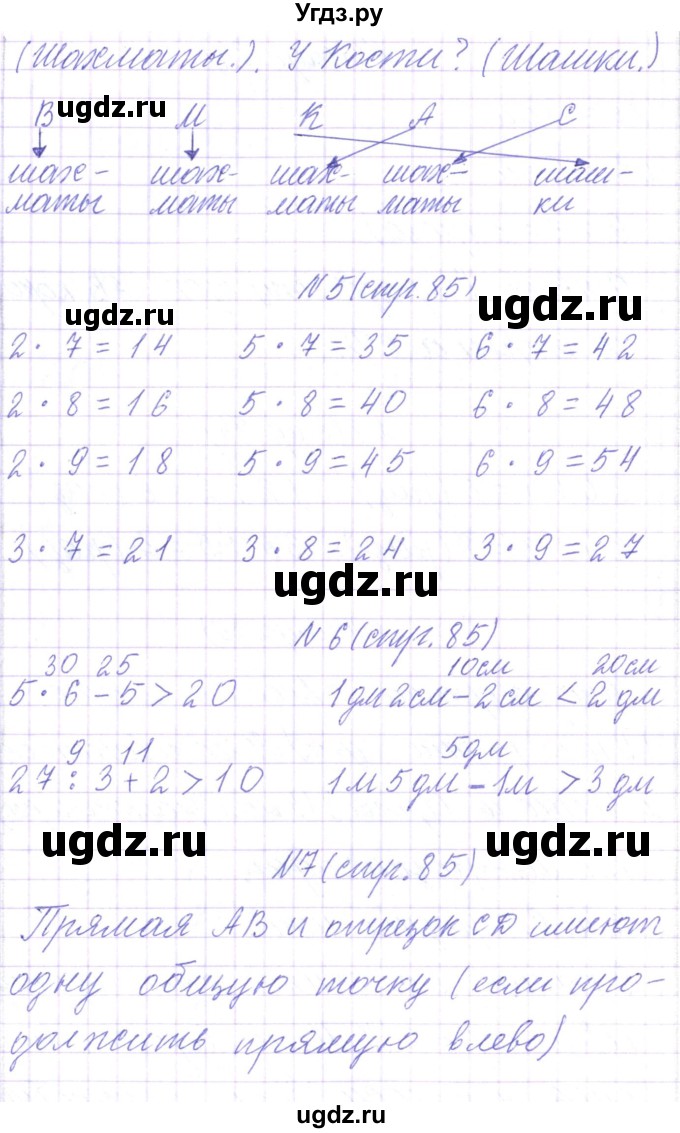 Угдз.ру
(Шахматы.). У Кости? (Шашки.)
ugdz.ru
В М К А С
шах- шах- шах- шах- шаш-
маты маты маты маты ки
№5 (стр. 85)
ugdz.ru ugdz.ru
2 · 7 = 14 5 · 7 = 35 6 · 7 = 42
2 · 8 = 16 5 · 8 = 40 6 · 8 = 48
2 · 9 = 18 5 · 9 = 45 6 · 9 = 54
3 · 7 = 21 3 · 8 = 24 3 · 9 = 27
ugdz.ru
№6 (стр. 85)
30 25 10см 20см
5 · 6 - 5 > 20 1дм 2см - 2см < 2дм
9 11 5дм
27 : 3 + 2 > 10 1м 5дм - 1м > 3дм
ugdz.ru ugdz.ru
№7 (стр. 85)
Прямая АВ и отрезок CD имеют
одну общую точку (если про-
должить прямую влево)
ugdz.ru